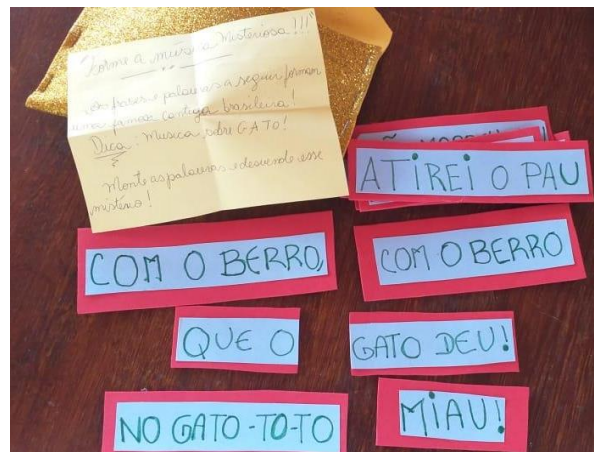 Forme a música Misteriosa!!!
As frases e palavras a seguir formam
uma famosa cantiga brasileira!
Dica: Música sobre GATO!
Monte as palavras e desvende esse
mistério!
ATIREI O PAU
COM O BERRO,
COM O BERRO
QUE O
GATO DEU!
NO GATO-TO-TO
MIAU!